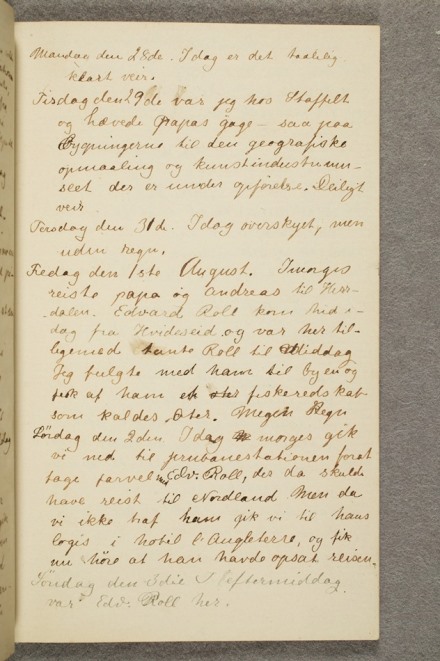 Mandag den 28de. Idag er det taalelig
klart veir.
Tisdag den 29de var jeg hos Staffelt
og hævede papas gage – saa paa
Bygningerne til den geografiske
opmaaling og kunstindustrimu-
seet der er under opførelse. Deiligt
veir
Torsdag den 31d. Idag overskyet, men
uden regn.
Fredag den 1ste August. Imorges
reiste papa og Andreas til Herr-
dalen. Edvard Roll kom hid i-
dag fra Hvideseid og var her til-
ligemed tante Roll til Middag
Jeg fulgte med ham til byen og
fik af ham et fiskeredskab
som kaldes Oter. Megen Regn
Lørdag den 2den. Idag morges gik
vi ned til jernbanestationen forat
tage farvel med Edv. Roll, der da skulde
have reist til Nordland Men da
vi ikke traf ham gik vi til hans
logis i hotil l'Angleterre, og fik
nu høre at han havde opsat reisen.
Søndag den 3die I Eftermiddag
var Edv. Roll her.